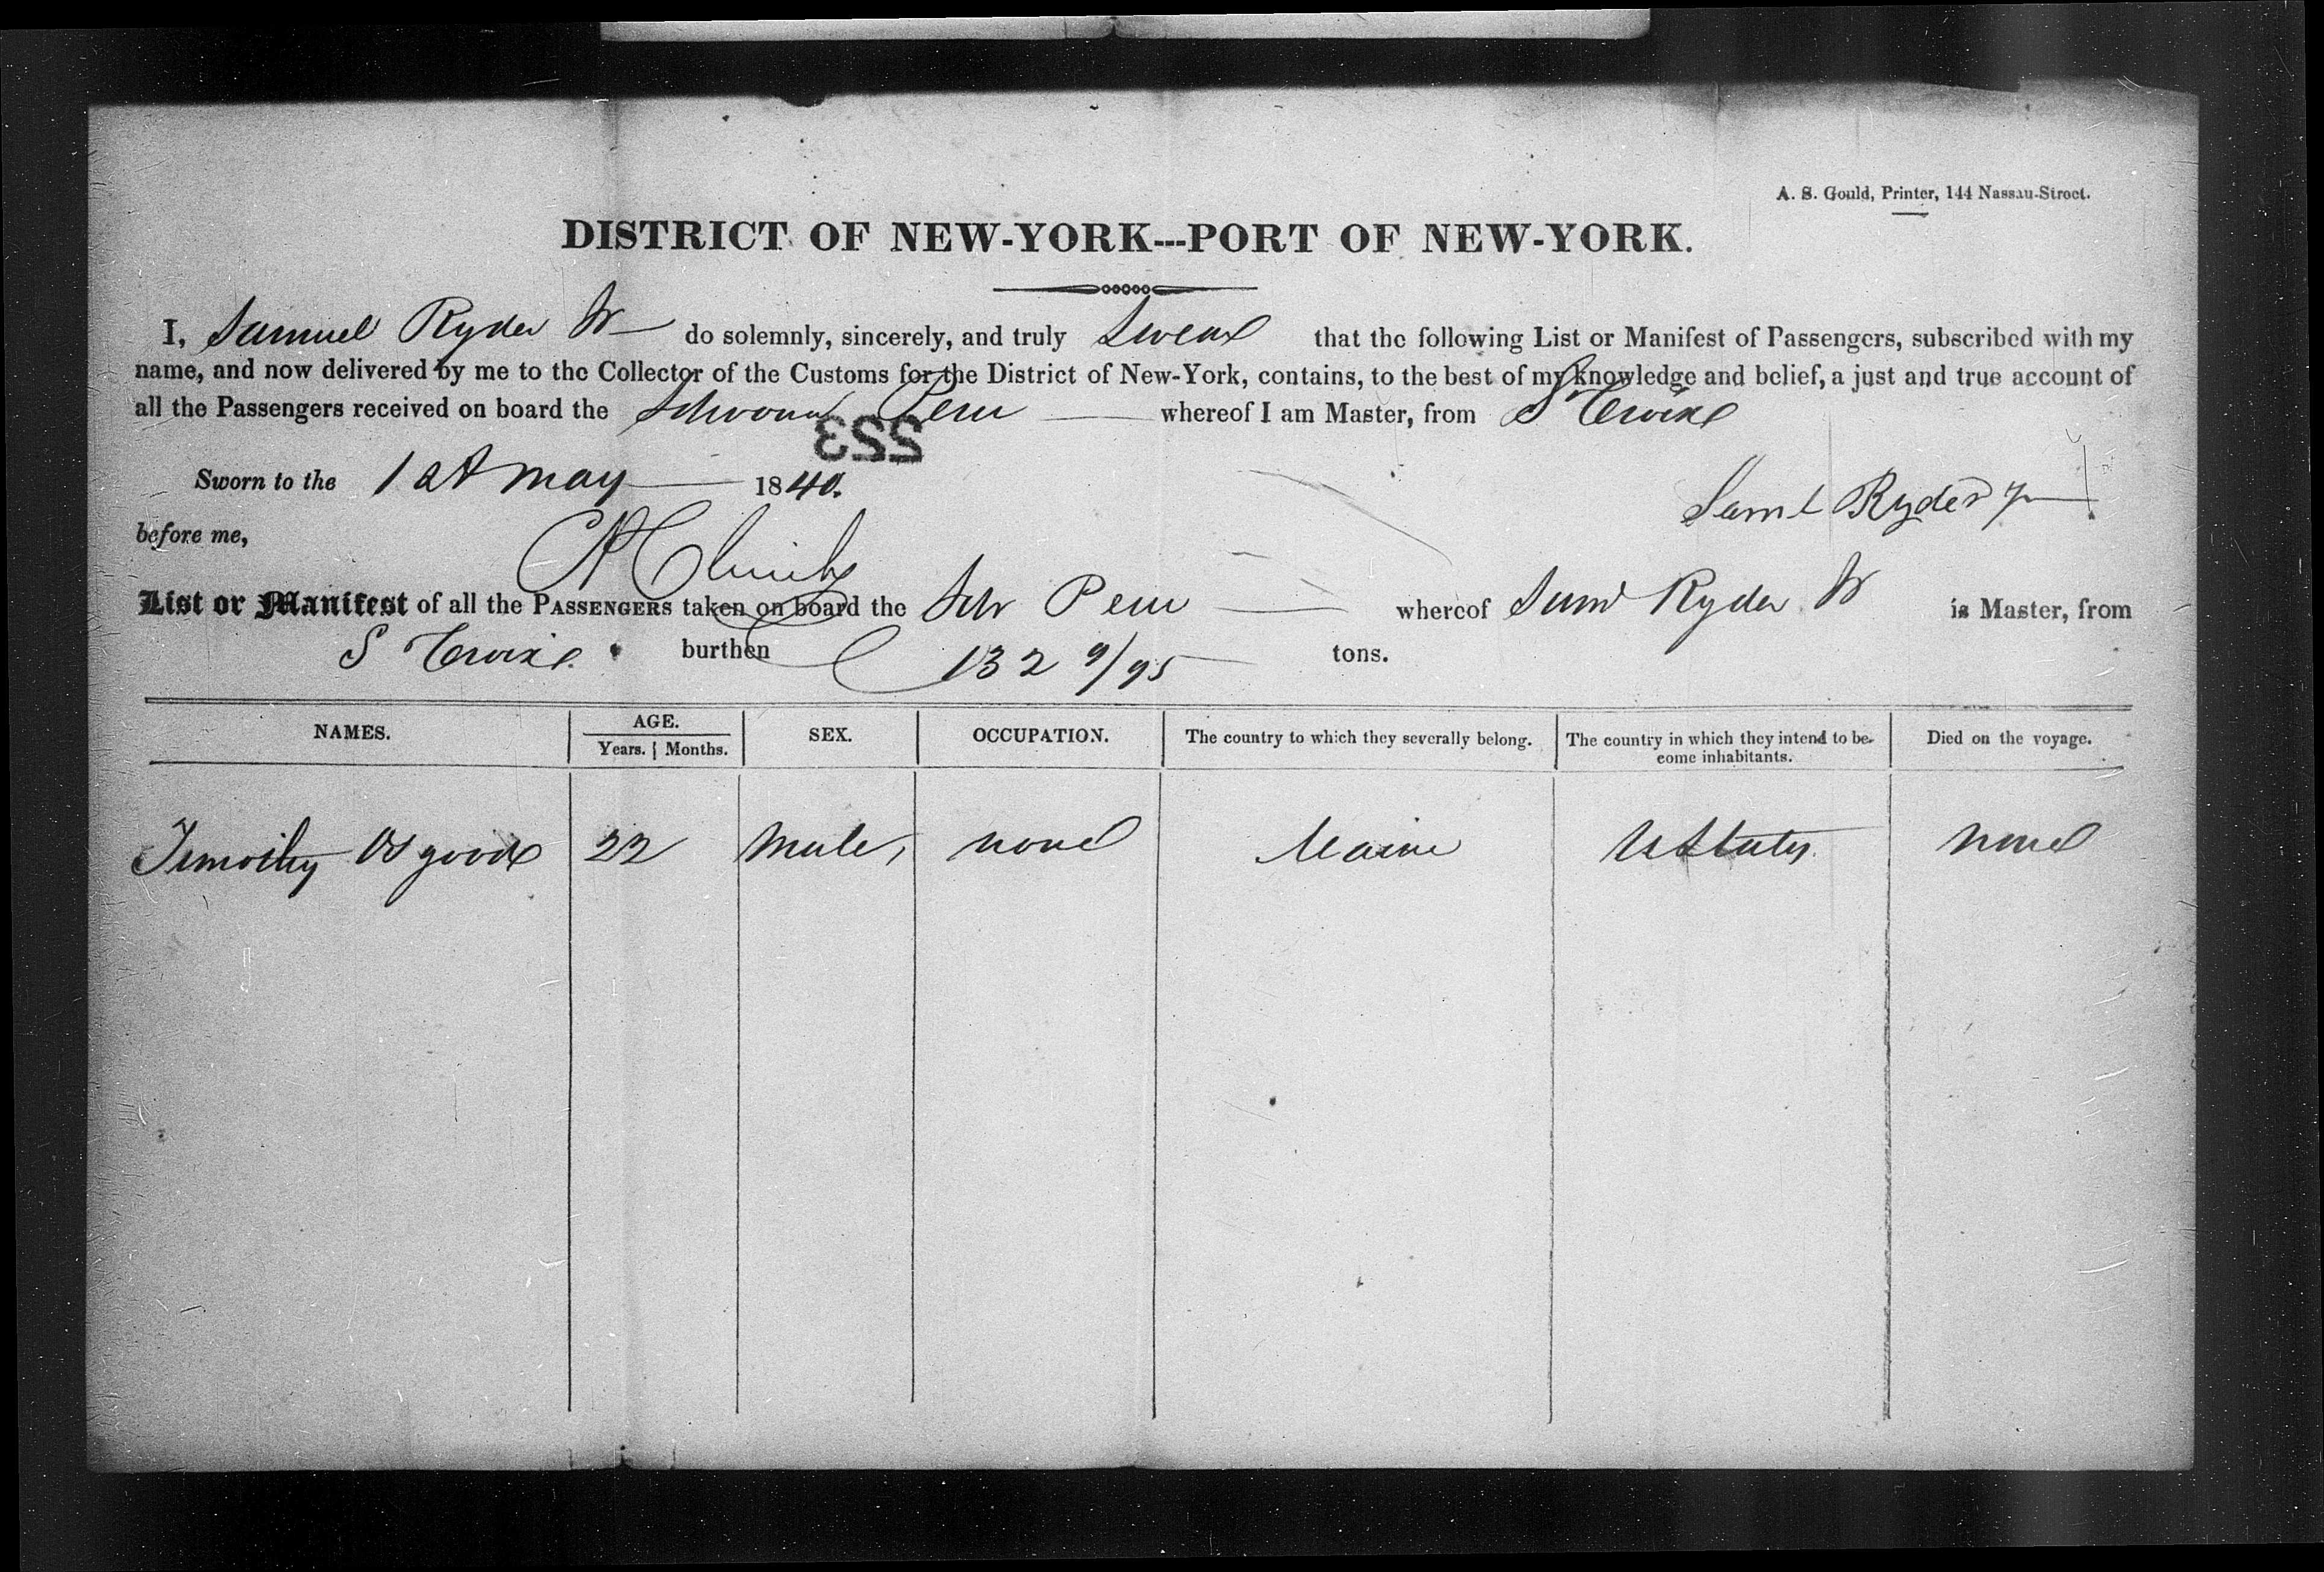 A. S. Gould, Printer, 144 Nassau-Street.
DISTRICT OF NEW-YORK---PORT OF NEW-YORK.
I, Samuel Ryder Jr do solemnly, sincerely, and truly Swear that the following List or Manifest of Passengers, subscribed with my
name, and now delivered by me to the Collector of the Customs for the District of New-York, contains, to the best of my knowledge and belief, a just and true account of
all the Passengers received on board the Schooner Peru whereof I am Master, from St Croix
223
Sworn to the 1st May 1840.
Saml Ryder Jr
before me,
List or Manifest of all the PASSENGERS taken on board the Schr Peru whereof Saml Ryder Jr is Master, from
St Croix burthen 132 9/95 tons.
NAMES. AGE. SEX. OCCUPATION. The country to which they severally belong. The country in which they intend to be- Died on the voyage.
Years. Months. come inhabitants.
Timothy Osgood 22 Male, none Maine U States. none